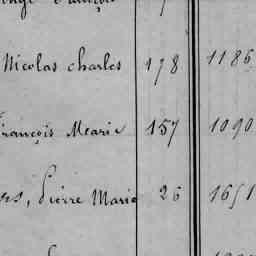 Nicolas charles 178 1186
François Marie 157 1090
Pierre Marie 26 1651